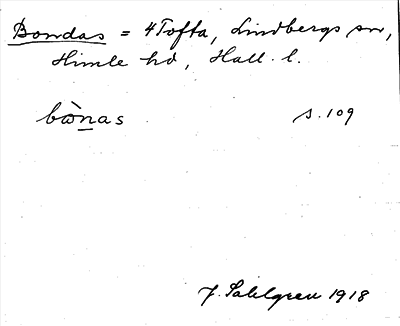 Bondas = 4 Tofta, Lindbergs sn,
Himle hd, Hall. l.
bònas s. 109
J. Sahlgren 1918